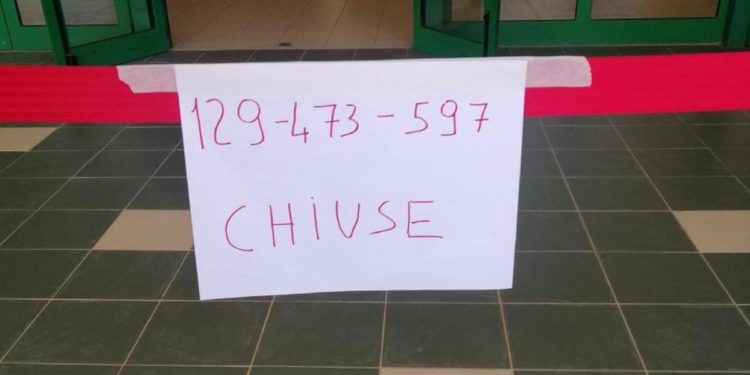 129-473-597
CHIUSE